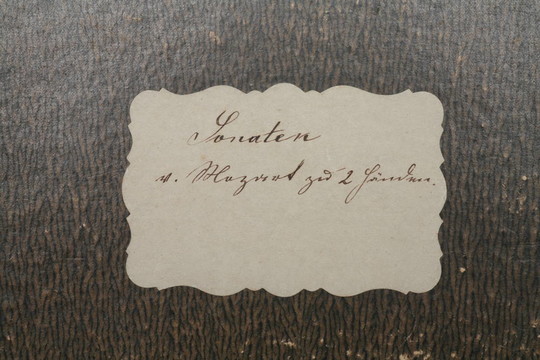 Sonaten
v. Mozart zu 2 Händen.